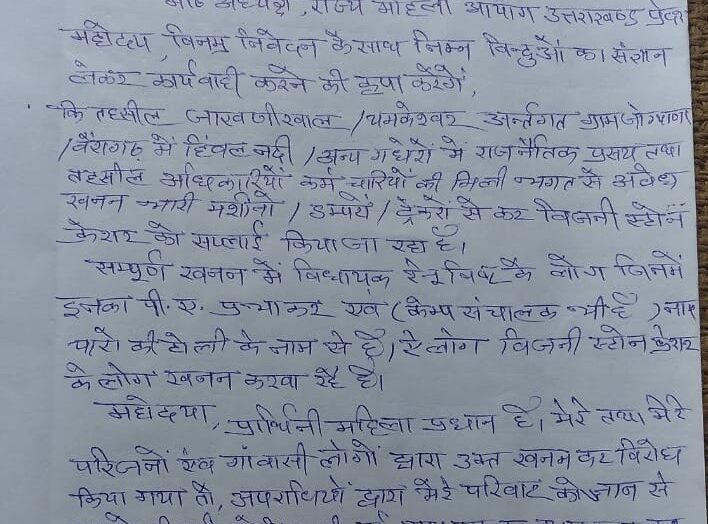 अध्यक्ष, राज्य महिला आयोग उत्तराखण्ड
महोदय, विनम्र निवेदन के साथ निम्न बिन्दुओं का संज्ञान
लेकर कार्यवाही करने की कृपा करेंगे,
कि तहसील जाखणीखाल / यमकेश्वर अर्न्तगत ग्राम
/ वैरागढ़ में हिंवल नदी / अन्य गधेरों में राजनैतिक प्रसय तथा
तहसील अधिकारियों कर्मचारियों की मिली भगत से अवैध
खनन भारी मशीनों / डम्परों / ट्रेक्टरों से कर विजनी स्टोन
क्रेशर को सप्लाई किया जा रहा है।
सम्पूर्ण खनन में विधायक रेनू विष्ट के लोग जिनमें
इनका पी. ए. एवं (केम्प संचालक भी है) नाम
की टोली के नाम से है, ऐ लोग विजनी स्टोन क्रेशर
के लोग खनन करवा रहे है।
महोदया, प्रार्थिनी महिला प्रधान है। मेरे तथा मेरे
परिजनों एंव गांवासी लोगों द्वारा उक्त खनन का विरोध
किया गया तो, अपराधियों द्वारा मेरे परिवार को जान से